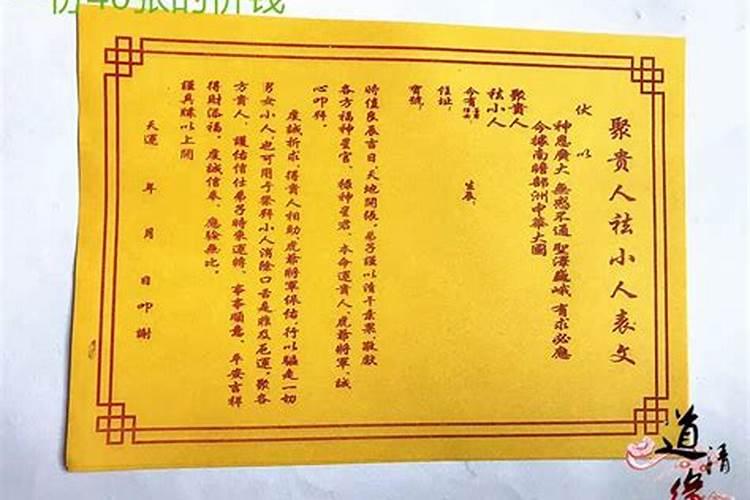 一份40张的价钱
聚貴人祛小人表文
伏以
神恩廣大 無惑不通 聖澤巍峨 有求必應
今據南瞻部洲中華大國
聚貴人
祛小人
今有
住址:
生辰:
寶號:
時值良辰吉日,天地開張,弟子謹以清干素果敬獻
各方福神星官、祿神星君、本命運貴人、虎爺將軍,誠
心叩拜。
虔誠祈求,得貴人相助虎爺將軍保佑行以驅走一切
男女小人也可用于祭拜小人消除口舌是非及厄運,聚各
方貴人,護佑信仕弟子時來運轉、事事順意、平安吉祥
得財添福。虔誠信奉、應驗無比。
謹具牒以上聞
天運 年 月 日叩謝
道清
缘